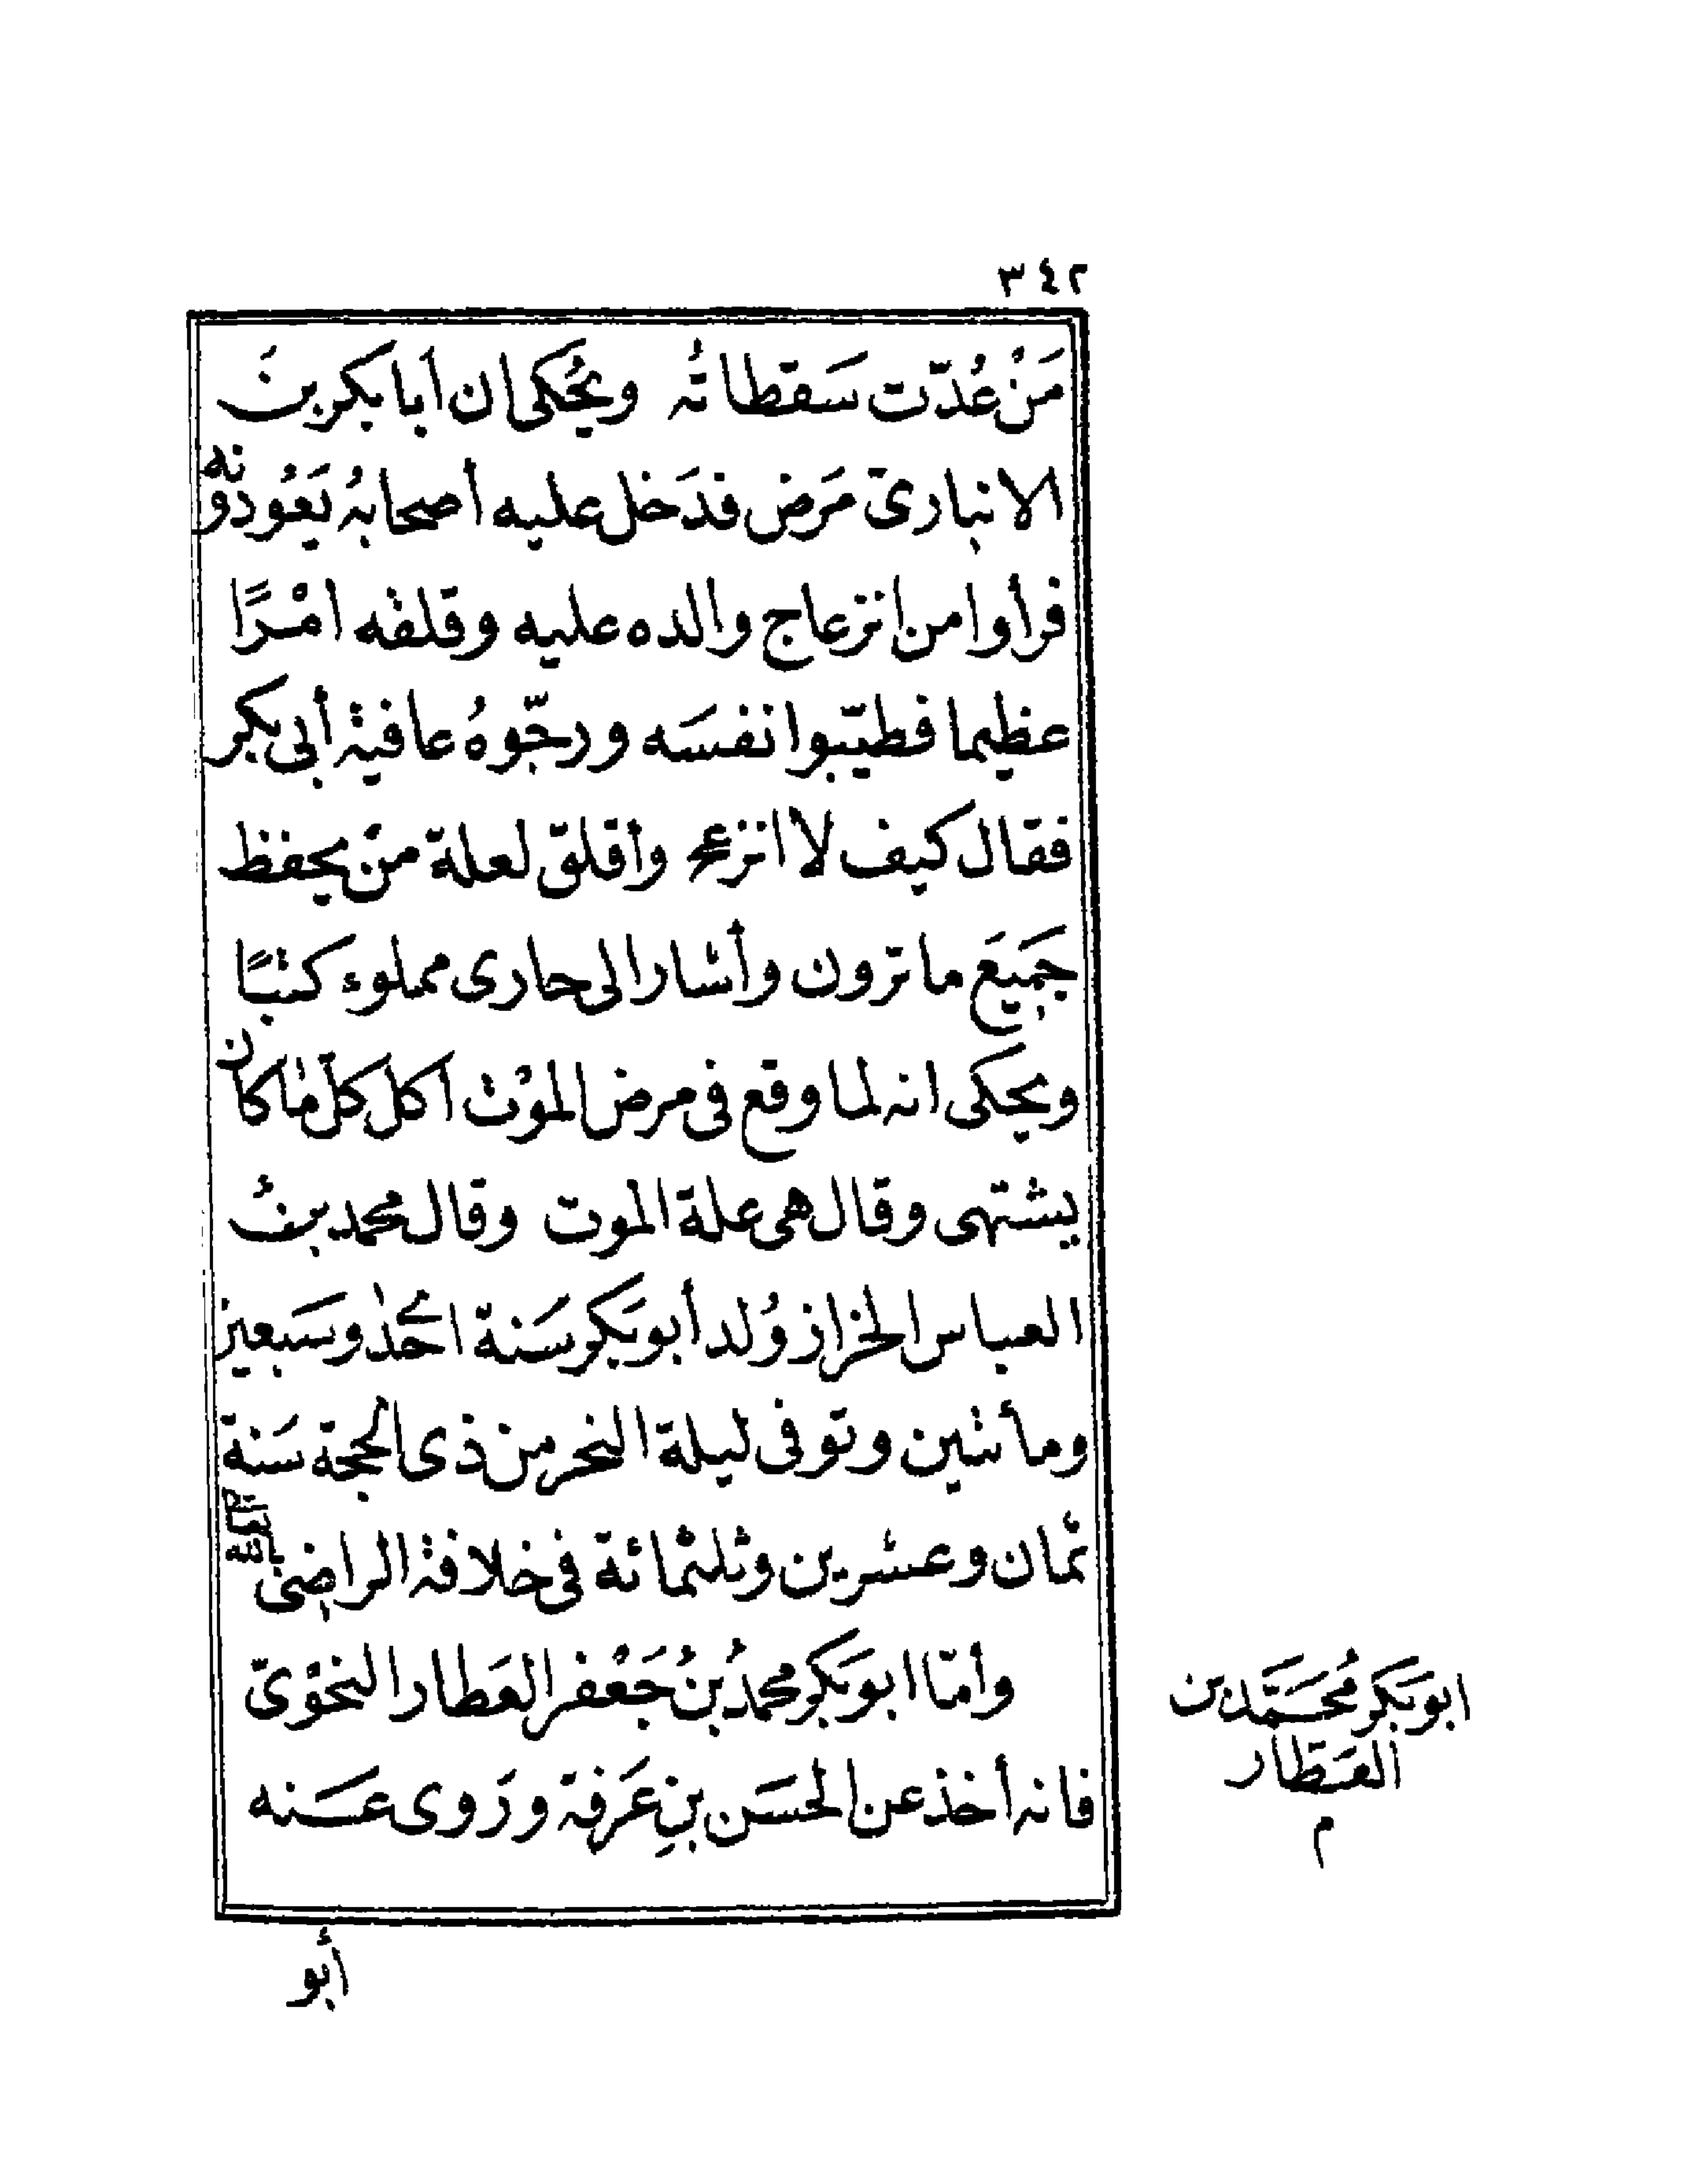 ٣٤٢
مَنْ عُدّت سَقطاتُه ويُحكى ان أبا بكر بنَ
الانبارىّ مَرَض فدَخل عليه أصحابهُ يَعُودُونه
فرأوا من انزعاج والده عليه وقلقه امْرًا
عظيما فطيّبوا نفسَه ورجّوهُ عافية أبى بكر
فقال كيف لا انزعج وأقلق لعلة منْ يحفظ
جَميَع ما ترون وأشار الى حارى مملوء كتبًا
ويحكى انه لما وقع فى مرض الموْت اكل كلّ ما كان
يشتهى وقال هى علة الموت وقال محمد بنُ
العباس الخزاز وُلد أبو بَكر سَنة احْدٰى وسَبعين
ومأتين وتوفى ليلة النحر من ذى الحجة سَنة
ثمان وعشرين وثلثمائة فى خلافة الراضى بالله تعالى
وأمّا ابو بَكر محمدُ بنُ جَعْفر العَطار النحْوىّ
فانه أخذ عن الحسَن بنِ عَرفة ورَوى عَنه
ابو بَكر مُحَمَّد بن
العَطّار
م
أبو